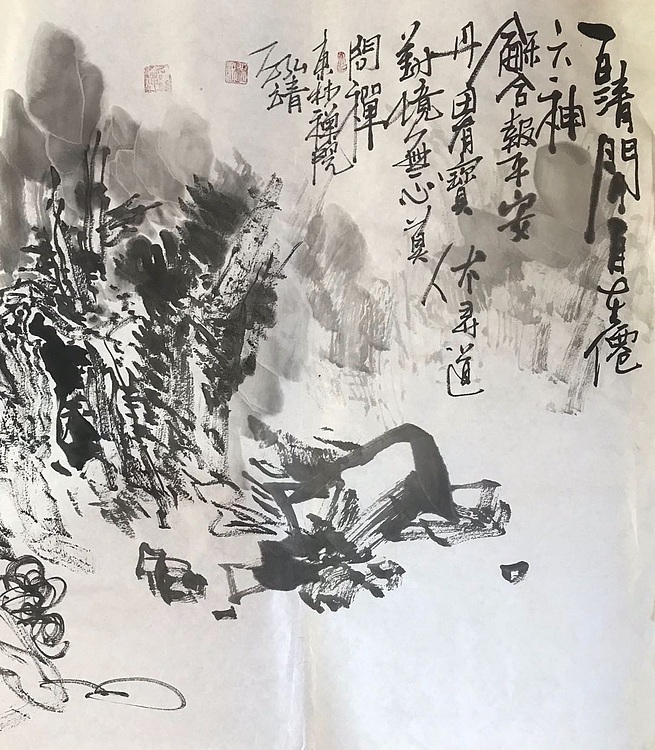 一日清閒自在僊
六神
龢合報平安
丹田有寶休尋道
對境無心莫
問禪
東林禪院